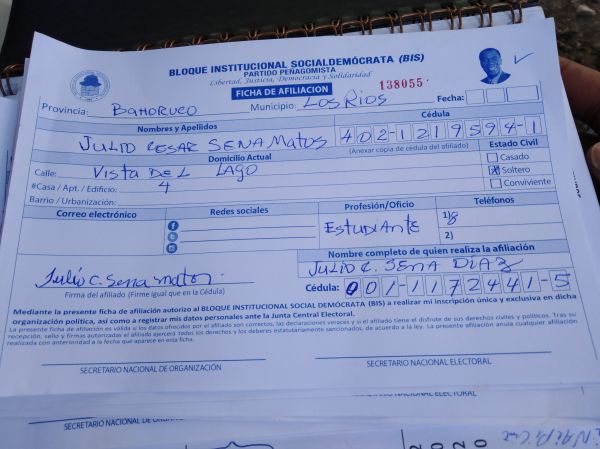 BLOQUE INSTITUCIONAL SOCIALDEMÓCRATA (BIS)
PARTIDO PEÑAGOMISTA
Libertad, Justicia, Democracia y Solidaridad
FICHA DE AFILIACION
138055
Provincia: BAHORUCO Municipio: LOS RIOS Fecha:
Nombres y Apellidos Cédula
JULIO CESAR SENA MATOS 402-1219594-1
(Anexar copia de cédula del afiliado)
Domicilio Actual Estado Civil
Calle: VISTA DEL LAGO Casado
#Casa / Apt. / Edificio: 4 Soltero
Barrio / Urbanización: Conviviente
Correo electrónico Redes sociales Profesión/Oficio Teléfonos
ESTUDIANTE 1)
2)
Nombre completo de quien realiza la afiliación
JULIO C. SENA DIAZ
Julio C. Sena matos
Firma del afiliado (Firme igual que en la Cédula)
Cédula: 001-1172441-5
Mediante la presente ficha de afiliación autorizo al BLOQUE INSTITUCIONAL SOCIAL DEMÓCRATA (BIS) a realizar mi inscripción única y exclusiva en dicha
organización política, así como a registrar mis datos personales ante la Junta Central Electoral.
La presente ficha de afiliación es válida si los datos ofrecidos por el afiliado son correctos, las declaraciones veraces y si el afiliado tiene el disfrute de sus derechos civiles y políticos. Tras su
recepción, sello y firmas autorizadas el afiliado ejercerá todos los derechos y los deberes estatutariamente sancionados, de acuerdo a la ley. La presente afiliación anula cualquier afiliación
realizada con anterioridad a la fecha que aparece en esta ficha.
SECRETARIO NACIONAL DE ORGANIZACIÓN SECRETARIO NACIONAL ELECTORAL
SECRETARIO NACIONAL DE ELECTORAL
2020